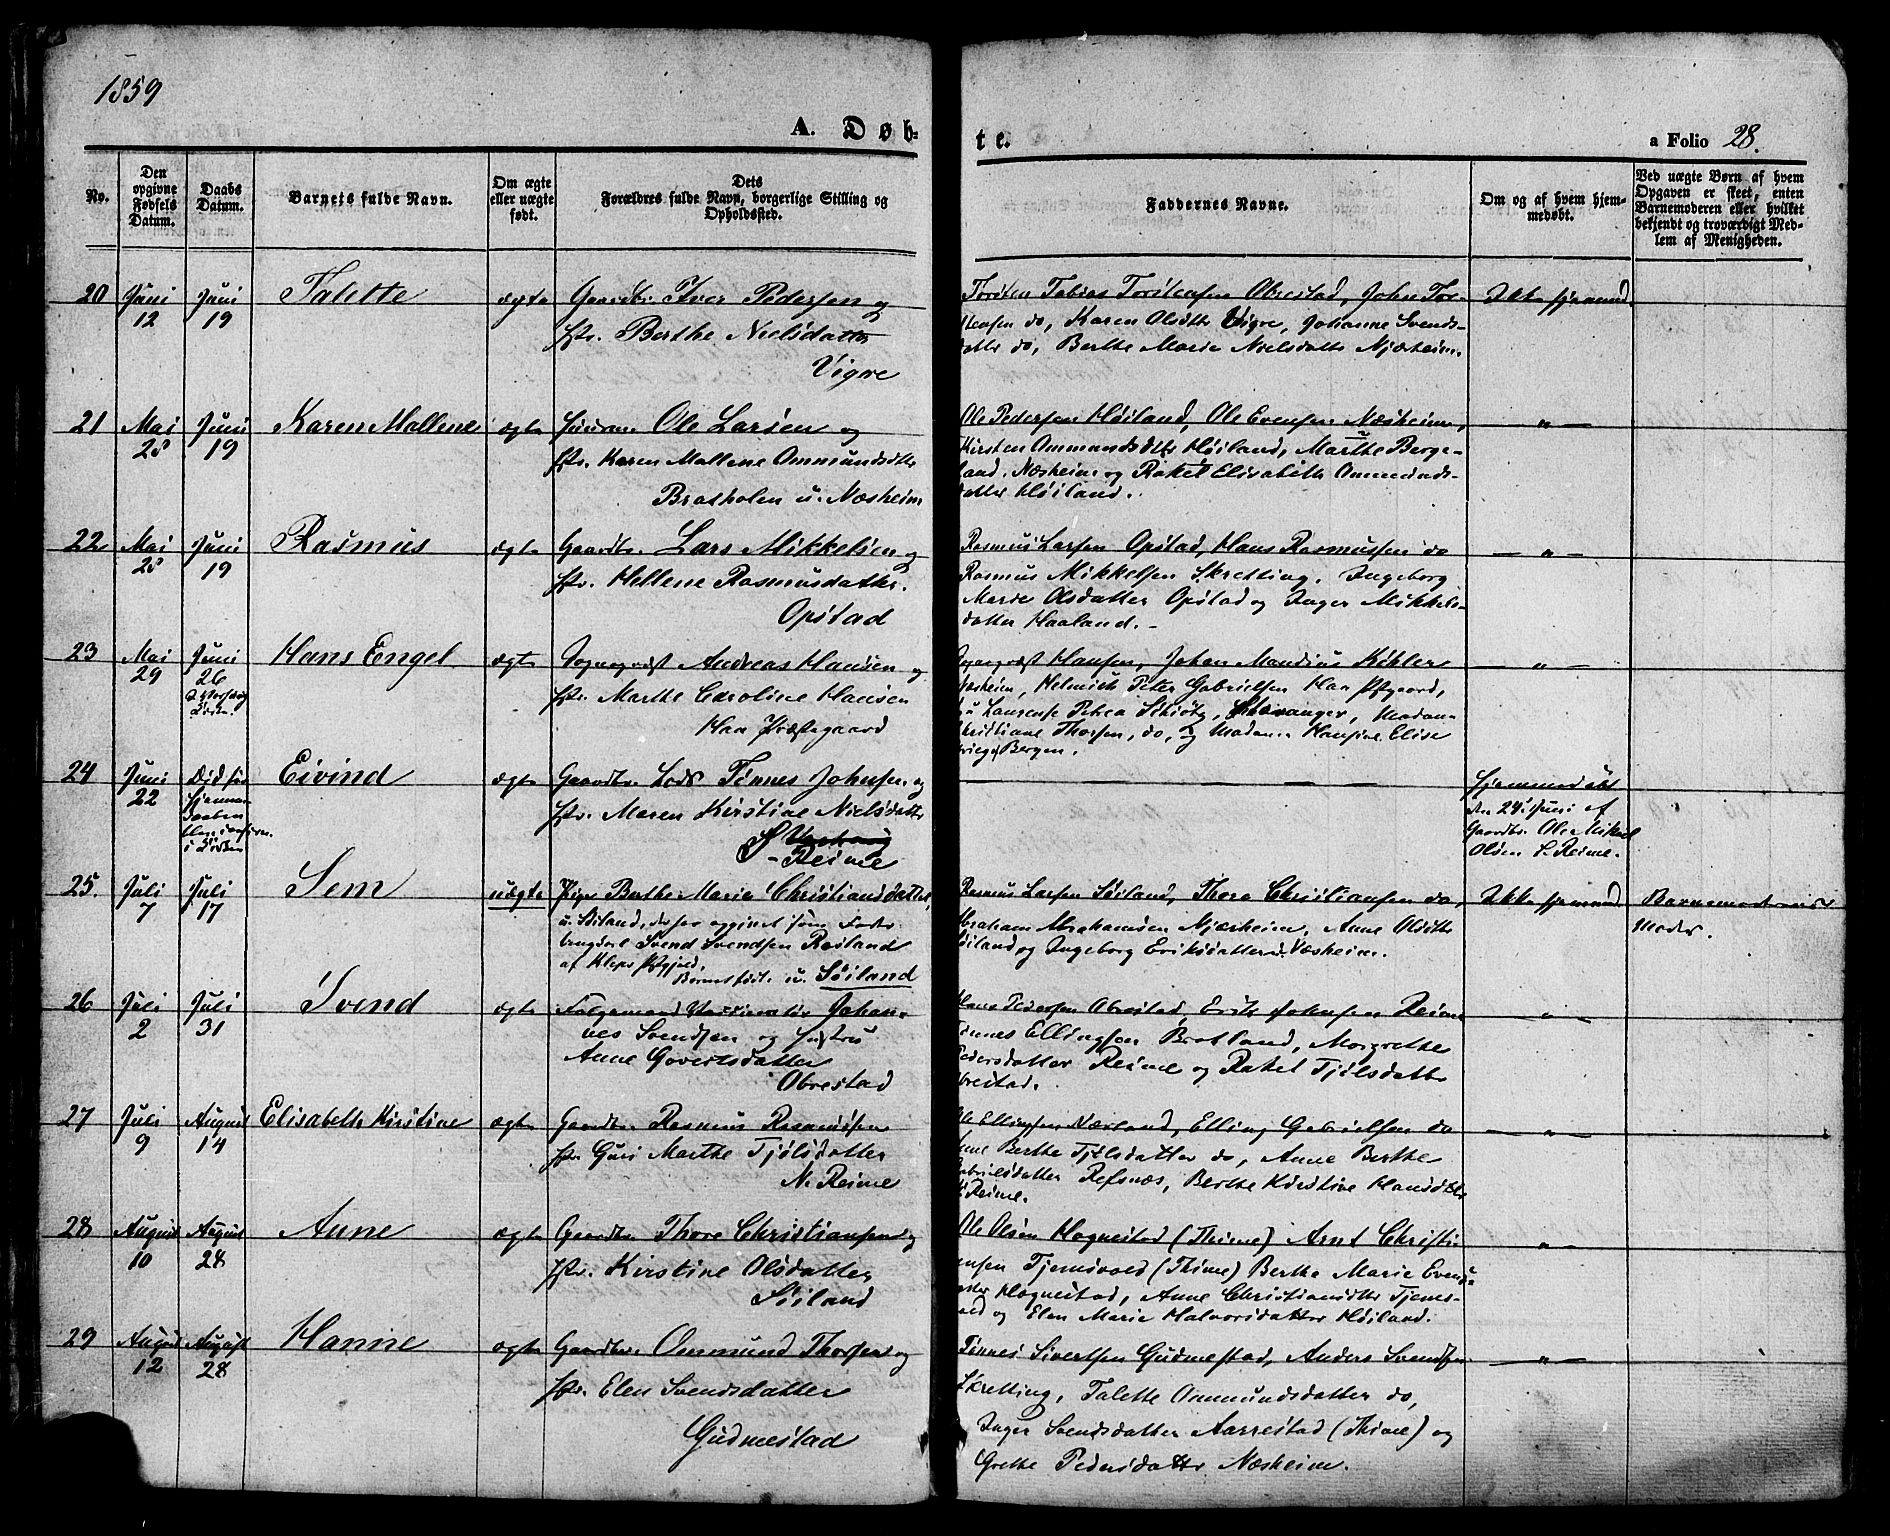 1859
A. Døb-
te.
a Folio 28.
No.
Den opgivne Fødsels Datum.
Daabs Datum.
Barnets fulde Navn.
Om ægte eller uægte født.
Dets Forældres fulde Navn, borgerlige Stilling og Opholdssted.
Faddernes Navne.
Om og af hvem hjemmedøbt.
Ved uægte Børn af hvem Opgaven er skeet, enten Barnemoderen eller hvilket bekjendt og troværdigt Medlem af Menigheden.
20 Juni 12 Juni 19 Talette ægte Gaardbr. Iver Pedersen og
Hstr. Berthe Nielsdatter
Vigre
Torsten Tobias Torstensen Obrestad, John Tor-
stensen do, Karen Olsdttr Vigre, Johanne Svends-
datter do, Berthe Marie Nielsdattr Njærheim.
Ikke hjemmed.
21 Mai 25 Juni 19 Karen Mallene ægte Huusm. Ole Larsen og
Hstr. Karen Mallene Ommundsdttr
Bratholen u. Næsheim
Ole Pedersen Høiland, Ole Evensen Næsheim,
Kirsten Ommundsdttr Høiland, Marthe Berge-
land, Næsheim og Rakel Elisabeth Ommunds-
datter Høiland.
— " —
22 Mai 25 Juni 19 Rasmus ægte Gaardbr. Lars Mikkelsen og
Hstr. Hellene Rasmusdatter.
Opstad
Rasmus Larsen Opstad, Hans Rasmussen do
Rasmus Mikkelsen Skretting, Ingeborg
Marie Olsdatter Opstad og Inger Mikkels-
datter Haaland. -
— " —
23 Mai 29 Juni 26 Hans Engel ægte Sognepræst Andreas Hansen og
Hstr. Marthe Caroline Hansen
Haa Præstegaard
Sognepræst Hansen, Johan Mandius Køhler
Næsheim, Helmich Peter Gabrielsen Haa Pstgaard,
Laurense Petrea Schiøtz, Stavanger, Madam
Christiane Thorsen, do, og Madam Hansine Elise
Krieg Bergen.
— " —
24 Juni 22 Død før
Hjemme-
daaben
i Kirken
Eivind ægte Gaardbr. Lods Tønnes Johnsen og
Hstr. Maren Kirstine Nielsdatter
S-Reime
— —
Hjemmedøbt
den 24 Juni af
Gaardbr. Ole Mikal
Olsen S. Reime.
25. Juli 7 Juli 17 Sem uægte Pige Berthe Marie Christiansdatter,
u. Søiland, der har opgivet som Fader
Svend Svendsen Røiland
af Kleps Pstgjeld,
Barnet født u. Søiland
Rasmus Larsen Søiland, Thore Christiansen do,
Abraham Abrahamsen Njærheim, Anne Olsdttr
Søiland og Ingeborg Eriksdatter Næsheim.
Ikke hjemmed.
Barnemoderens
Moder.
26 Juli 2 Juli 31 Svend ægte Johan-
nes Svendsen og Hustru
Anne Govertsdatter
Obrestad
Hans Pedersen Obrestad, Erik Johnsen Reime
Tønnes Ellingsen Brotland, Margrethe
Pedersdatter Reime og Rakel Tjølsdattr
Obrestad.
— " —
27 Juli 9 August 14 Elisabeth Kirstine ægte Gaardbr. Rasmus Rasmussen
Hstr. Guri Marthe Tjølsdatter
N. Reime
Ole Ellingsen Nærland, Elling Gabrielsen do
Anne Berthe Tjølsdatter do, Anne Berthe
Gabrielsdatter Refsnæs, Berthe Kirstine Hansdttr
N. Reime.
— " —
28 August 10 August 28 Anne ægte Gaardbr. Thore Christiansen og
Hstr. Kirstine Olsdatter
Søiland
Ole Olsen Hognestad (Thime) Arnt Christi-
ensen Tjemsvold (Thime) Berthe Marie Evens-
datter Hognestad, Anne Christiansdttr Tjems-
vold og Elen Marie Halvorsdatter Høiland.
— " —
29 August 12 August 28 Hanne ægte Gaardbr. Ommund Thorsen og
Hstr. Elen Svendsdatter
Gudmestad
Tønnes Sivertsen Gudmestad, Anders Svendsen
Skretting, Talette Ommundsdatter do,
Inger Svendsdatter Aarrestad (Thime) og
Grethe Pedersdatter Næsheim.
— " —